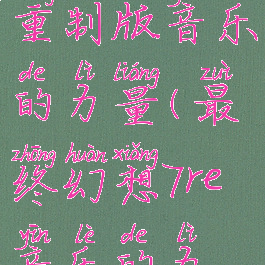 重制版音乐
de lì liáng zuì
的力量(最
zhōng huàn xiǎng
终幻想7re
yīn lè de lì
音乐的力